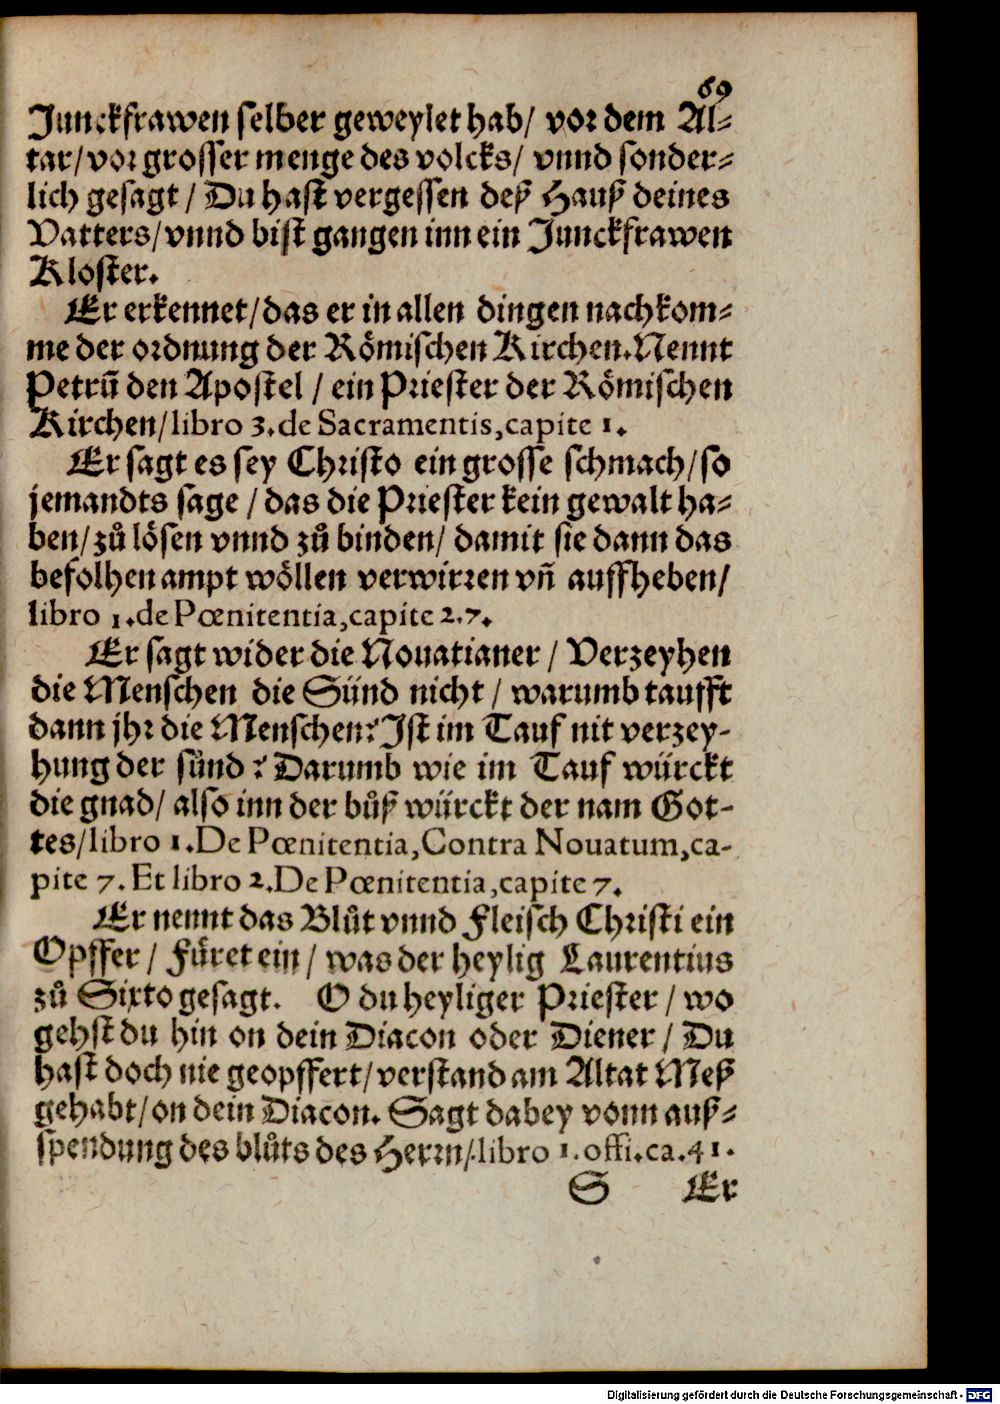 69
Junckfrawen selber geweylet hab/ vor dem Al⸗
tar/ vor grosser menge des volcks/ vnnd sonder⸗
lich gesagt/ Du hast vergessen deß Hauß deines
Vatters/ vnnd bist gangen inn ein Junckfrawen
Kloster.
Er erkennet/ das er in allen dingen nachkom⸗
me der ordnung der Römischen Kirchen. Nennt
Petrū den Apostel / ein Priester der Römischen
Kirchen/ libro 3. de Sacramentis, capite 1.
Er sagt es sey Christo ein grosse schmach/ so
jemandts sage / das die Priester kein gewalt ha⸗
ben/ zů lösen vnnd zů binden/ damit sie dann das
befolhen ampt wöllen verwirren vñ auffheben/
libro 1. de Pœnitentia, capite 2.7.
Er sagt wider die Nouatianer / Verzeyhen
die Menschen die Sünd nicht / warumb taufft
dann jhr die Menschen? Ist im Tauf nit verzey-
hung der sünd? Darumb wie im Tauf würckt
die gnad/ also inn der bůß würckt der nam Got-
tes/ libro 1. De Pœnitentia, Contra Nouatum, ca-
pite 7. Et libro 2. De Pœnitentia, capite 7.
Er nennt das Blůt vnnd Fleisch Christi ein
Opffer / Füret ein / was der heylig Laurentius
zů Sixto gesagt. O du heyliger Priester / wo
gehst du hin on dein Diacon oder Diener / Du
hast doch nie geopffert/ verstand am Altat Meß
gehabt/ on dein Diacon. Sagt dabey vonn auß⸗
spendung des blůts des Herrn/ libro 1. offi. ca. 41.
S Er
Digitalisierung gefördert durch die Deutsche Forschungsgemeinschaft - DFG